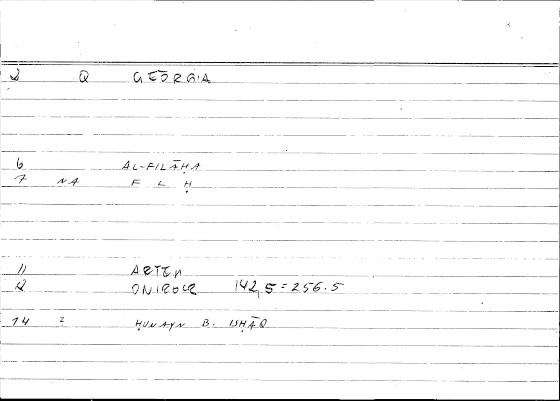 2 Q GEŌRGIA
6 AL-FILĀḤA
7 NA F L Ḥ
11 ARTEM
12 ONIROCR 142,5=256.5
14 2 ḤUNAYN B. ISḤĀQ